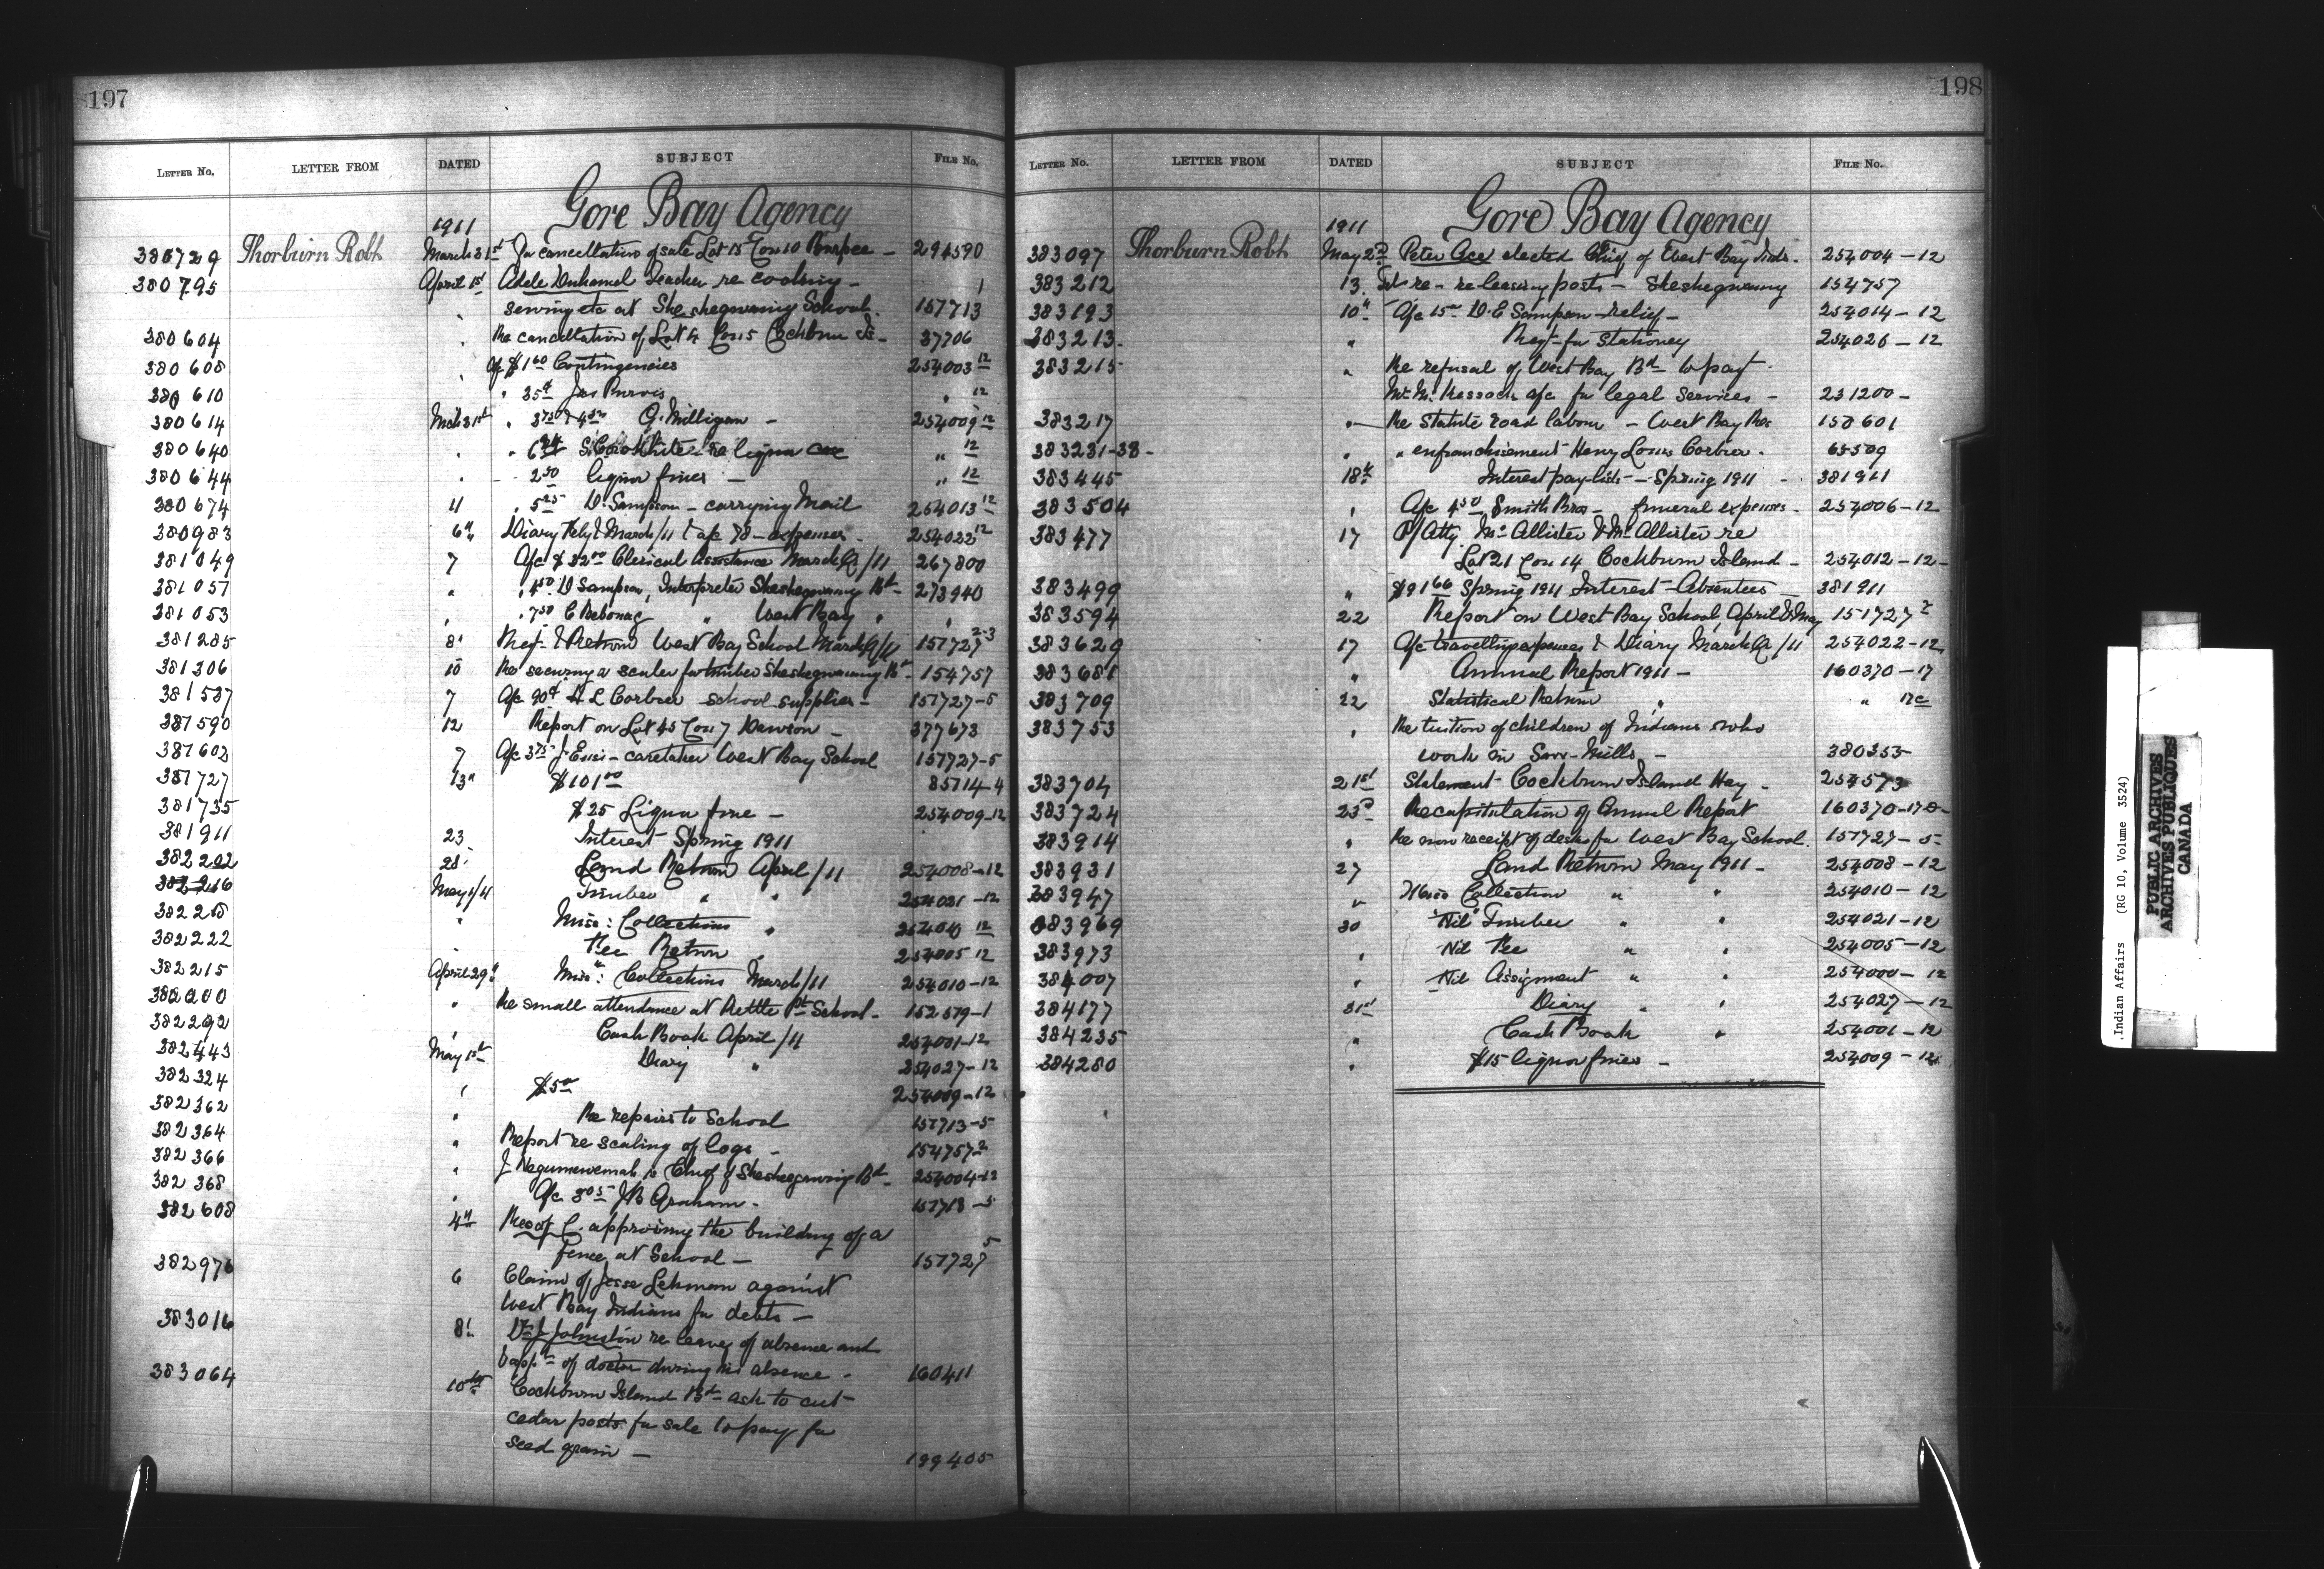 197
LETTER NO. LETTER FROM DATED SUBJECT FILE NO.
Gore Bay Agency
1911
380729 Thorburn Robt March 31st For cancellation of sale Lot 15 Con 10 Burpee - 294590
380795 April 1st Adele Duhamel Teacher re cooking - 1
sewing etc at Sheshegwaning School. 157713
380604 Re cancellation of Lot 4 Con 5 Cockburn Is - 37706
380608 A/c $1.60 Contingencies 254003 12
380610 " 35¢ Jas Purvis " 12
380614 Mch 31st " 3.75 & 4.50 G. Milligan - 254009 12
380640 " re liquor case " 12
380644 " 2.50 liquor fines - " 12
380674 11 " 5.25 D. Sampson - carrying Mail 254013 12
380983 6th Diary Feby & March/11 & a/c 78 - expenses - 254022 12
381049 7 A/c $32.00 Clerical Assistance March Qr/11 267800
381057 " " 4.50 D Sampson, Interpreter Sheshegwaning Bd - 273940
381053 " " 7.50 C Nebonag " West Bay " "
381285 8 Regr & Return West Bay School March Qr/11 157727 2-3
381306 10 Re securing a scaler for timber Sheshegwaning Bd - 154757
381587 7 A/c 90¢ H L Corbier school supplies - 157727-5
381590 12 Report on Lot 45 Con 7 Dawson - 377673
381602 7 A/c 3.75 J. Ense - caretaker West Bay School 157727-5
381727 13" $101.00 85714-4
381735 $25 Liquor fine - 254009-12
381911 23 Interest Spring 1911
382202 28 Land Return April/11 254008-12
382216 May 1/11 Timber " " 254021-12
382218 " Misc: Collections " 254010 12
382222 " Fee Return " 254005 12
382215 April 29" Misc: Collections March/11 254010-12
382200 " Re small attendance at Kettle Pt School - 152579-1
382292 " Cash Book April/11 254001-12
382443 May 1st Diary " 254027-12
382324 " $5.00 254009-12
382362 " Re repairs to School 157713-5
382364 " Report re scaling of logs - 154757-2
382366 " J Negunewenah is Chief of Sheshegwaning Bd - 254004-12
382368 " A/c 3.05 J B Graham - 157713-5
382608 4th Res of C. approving the building of a
fence at School - 157727 5
382976 6 Claim of Jesse Lehman against
West Bay Indians for debts -
383016 8" Dr J Johnston re leave of absence and
appt of doctor during his absence - 160411
383064 10th Cockburn Island Bd - ask to cut
cedar posts for sale to pay for
seed grain - 199405
198
LETTER NO. LETTER FROM DATED SUBJECT FILE NO.
Gore Bay Agency
1911
383097 Thorburn Robt May 2nd Peter Ace elected Chief of West Bay Inds. 254004-12
383212 13 Tel re - releasing posts - Sheshegwaning 154757
383193 10" A/c 15.00 D. E Sampson - relief - 254014-12
383213 " Reqt for Stationery 254026-12
383215 " Re refusal of West Bay Bd to pay
Mr. a/c for legal services - 231200-
383217 " Re Statute road labour - West Bay Res 158601
383231-38- " " enfranchisement Henry Louis Corbier - 65509
383445 18th Interest pay-lists - Spring 1911 - 381911
383504 " A/c 4.50 Smith Bros - funeral expenses - 254006-12
383477 17 P/Atty McAllister & McAllister re
Lot 21 Con 14 Cockburn Island - 254012-12-
383499 " $91.66 Spring 1911 Interest - Absentees - 381911
383594 22 Report on West Bay School April & May 151727 2
383629 17 A/c travelling expenses & Diary March Qr/11 254022-12
383681 " Annual Report 1911 - 160370-17
383709 22 Statistical Return " " 17c
383753 " Re tuition of children of Indians who
work in Saw-Mills - 380355
383704 21st Statement - Cockburn Island Hay - 254573
383724 25th Recapitulation of Annual Report 160370-17-D-
383914 " Re non receipt of desks for West Bay School. 157727-5-
383931 27 Land Return May 1911 - 254008-12
383947 " Misc Collection " " 254010-12
383969 30 "Nil" Timber " " 254021-12
383973 " Nil Fee " " 254005-12
384007 " Nil Assignment " " 254000-12
384177 31st Diary " " 254027-12
384235 " Cash Book " 254001-12
384280 " $15 liquor fines - 254009-12
Indian Affairs (RG 10, Volume 3524)
PUBLIC ARCHIVES
ARCHIVES PUBLIQUES
CANADA